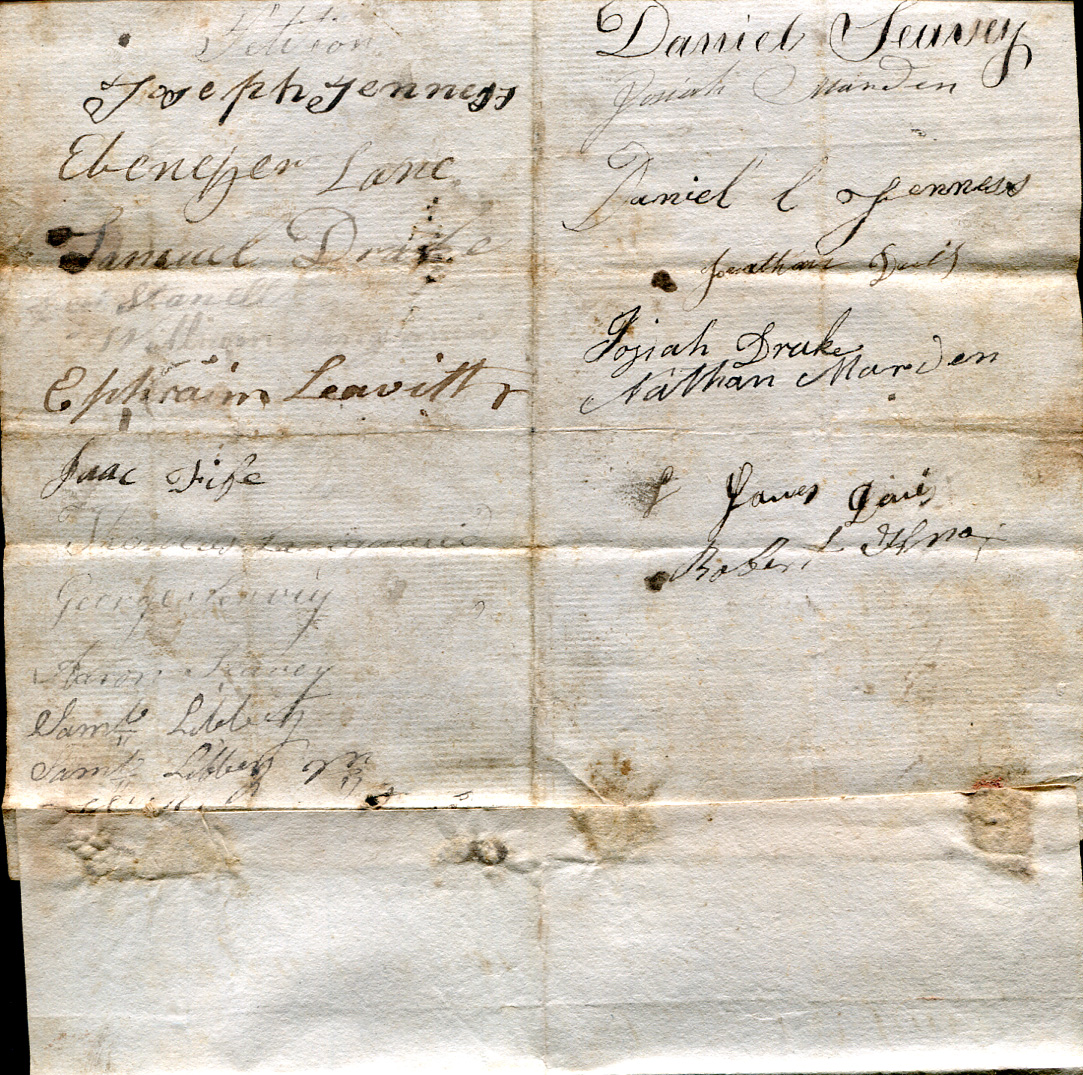 Petition
Joseph Jenness
Ebenezer Lane
Samuel Drake
William
Ephraim Leavitt
Isaac Fife
Thomas
George Seavey
Aaron Seavey
Saml Libbey
Saml Libbey
Daniel Seavey
Josiah Marden
Daniel L Jenness
Jonathan
Josiah Drake
Nathan Marden
James
Robert